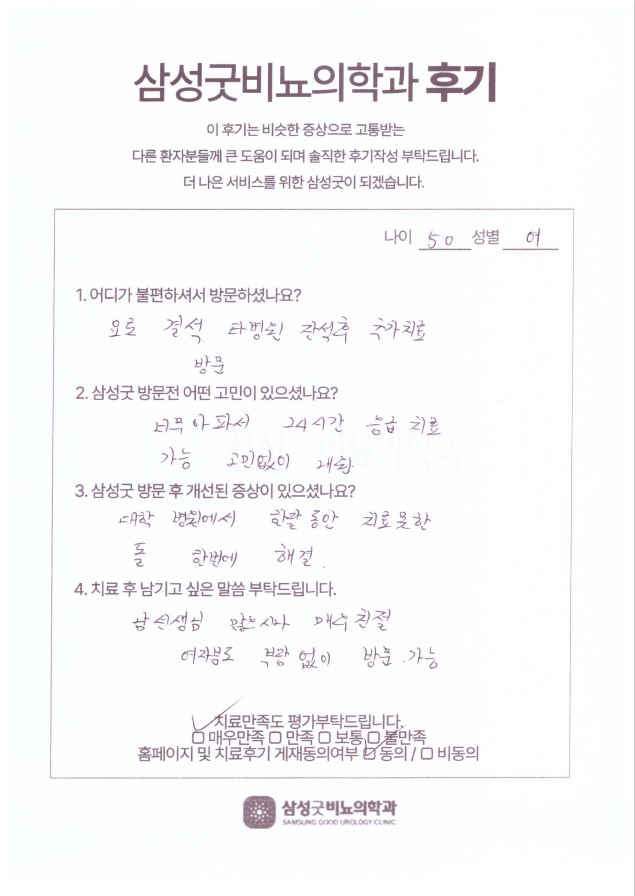 삼성굿비뇨의학과 후기
이 후기는 비슷한 증상으로 고통받는
다른 환자분들께 큰 도움이 되며 솔직한 후기작성 부탁드립니다.
더 나은 서비스를 위한 삼성굿이 되겠습니다.
나이 50 성별 여
1. 어디가 불편하셔서 방문하셨나요?
요로 결석 타병원 잔석후 추가치료
방문
2. 삼성굿 방문전 어떤 고민이 있으셨나요?
너무 아파서 24시간 응급 치료
가능 고민없이
3. 삼성굿 방문 후 개선된 증상이 있으셨나요?
대학 병원에서 한달 동안 치료못한
돌 한번에 해결.
4. 치료 후 남기고 싶은 말씀 부탁드립니다.
남선생님 매우 친절
여자분도 부담 없이 방문.가능
치료만족도 평가부탁드립니다.
매우만족 만족 보통 불만족
홈페이지 및 치료후기 게재동의여부 동의 / 비동의
삼성굿비뇨의학과
SAMSUNG GOOD UROLOGY CLINIC